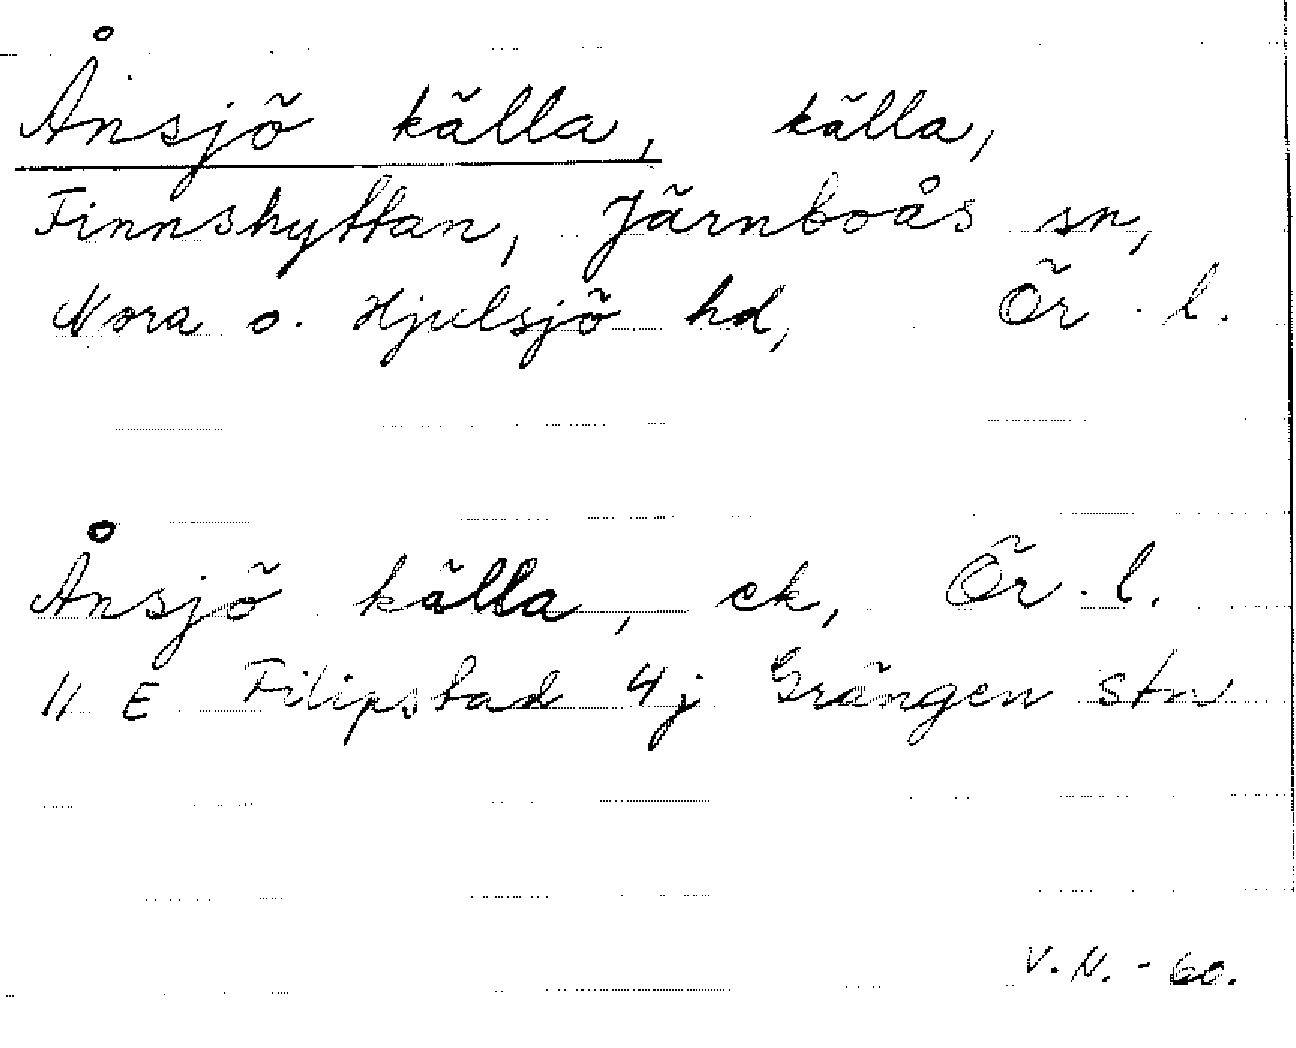 Ånsjö källa, källa,
Finnshyttan, Järnboås sn,
Nora o. Hjulsjö hd, Ör. l.
Ånsjö källa, ek, Ör. l.
11 E Filipstad 4j Grängen stn
V.N. - 60.